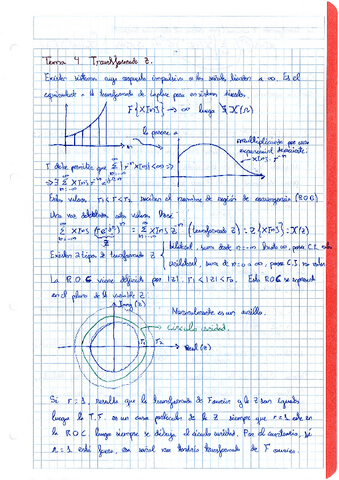 Tema 4 Transformada Z.
Existen sistemas cuya respuesta impulsiva o las señales tienden a ∞. Es el
equivalente a la transformada de Laplace para un sistema discreto.
F{X[n]} → ∞ luego ∄ X(Ω)
multiplicando por una
exponencial decreciente:
x[n]·r^-n
r debe permitir que Σ |r^-n x[n]| < ∞ =>
=> ∃ Σ x[n] r^-n e^-jΩn
Estos valores r₁<r<r₂ reciben el nombre de región de convergencia (ROC)
Una vez establecidos estos valores
Σ x[n] (r e^jΩ)^-n = Σ x[n] Z^-n (transformada Z) = Z{x[n]} = X(z)
Existen 2 tipos de transformada Z
bilateral, suma desde n=-∞ hasta ∞, para C.I. nulas
unilateral, suma de n=0 a ∞, para C.I. no nulas
La R.O.C viene definida por |z|, r₁<|z|<r₂. Esta ROC se representa
en el plano de la variable Z
Imag (z)
Normalmente es un anillo.
Círculo unidad.
r₁ r₂ Real (z)
Si r=1, resulta que la transformada de Fourier y la Z son iguales
luego la T.F. es un caso particular de la Z siempre que r=1 esté en
la ROC luego siempre se dibuja el círculo unidad. Por el contrario, si
r=1 está fuera, esa señal no tendría transformada de Fourier.